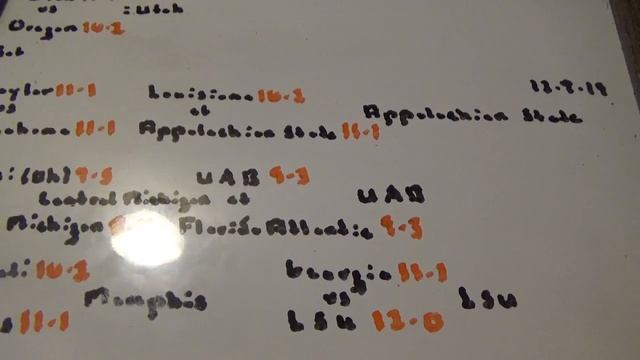 vs : Utah
Oregon 10-2
ylor 11-1 Louisiana 10-2
vs at Appalachian State
ahoma 11-1 Appalachian State 11-1
i (Oh) UAB 9-3
Central Michigan at UAB
Michigan Florida Atlantic 9-3
ati 10-2 Georgia 11-1
Memphis vs LSU
s 11-1 LSU 12-0